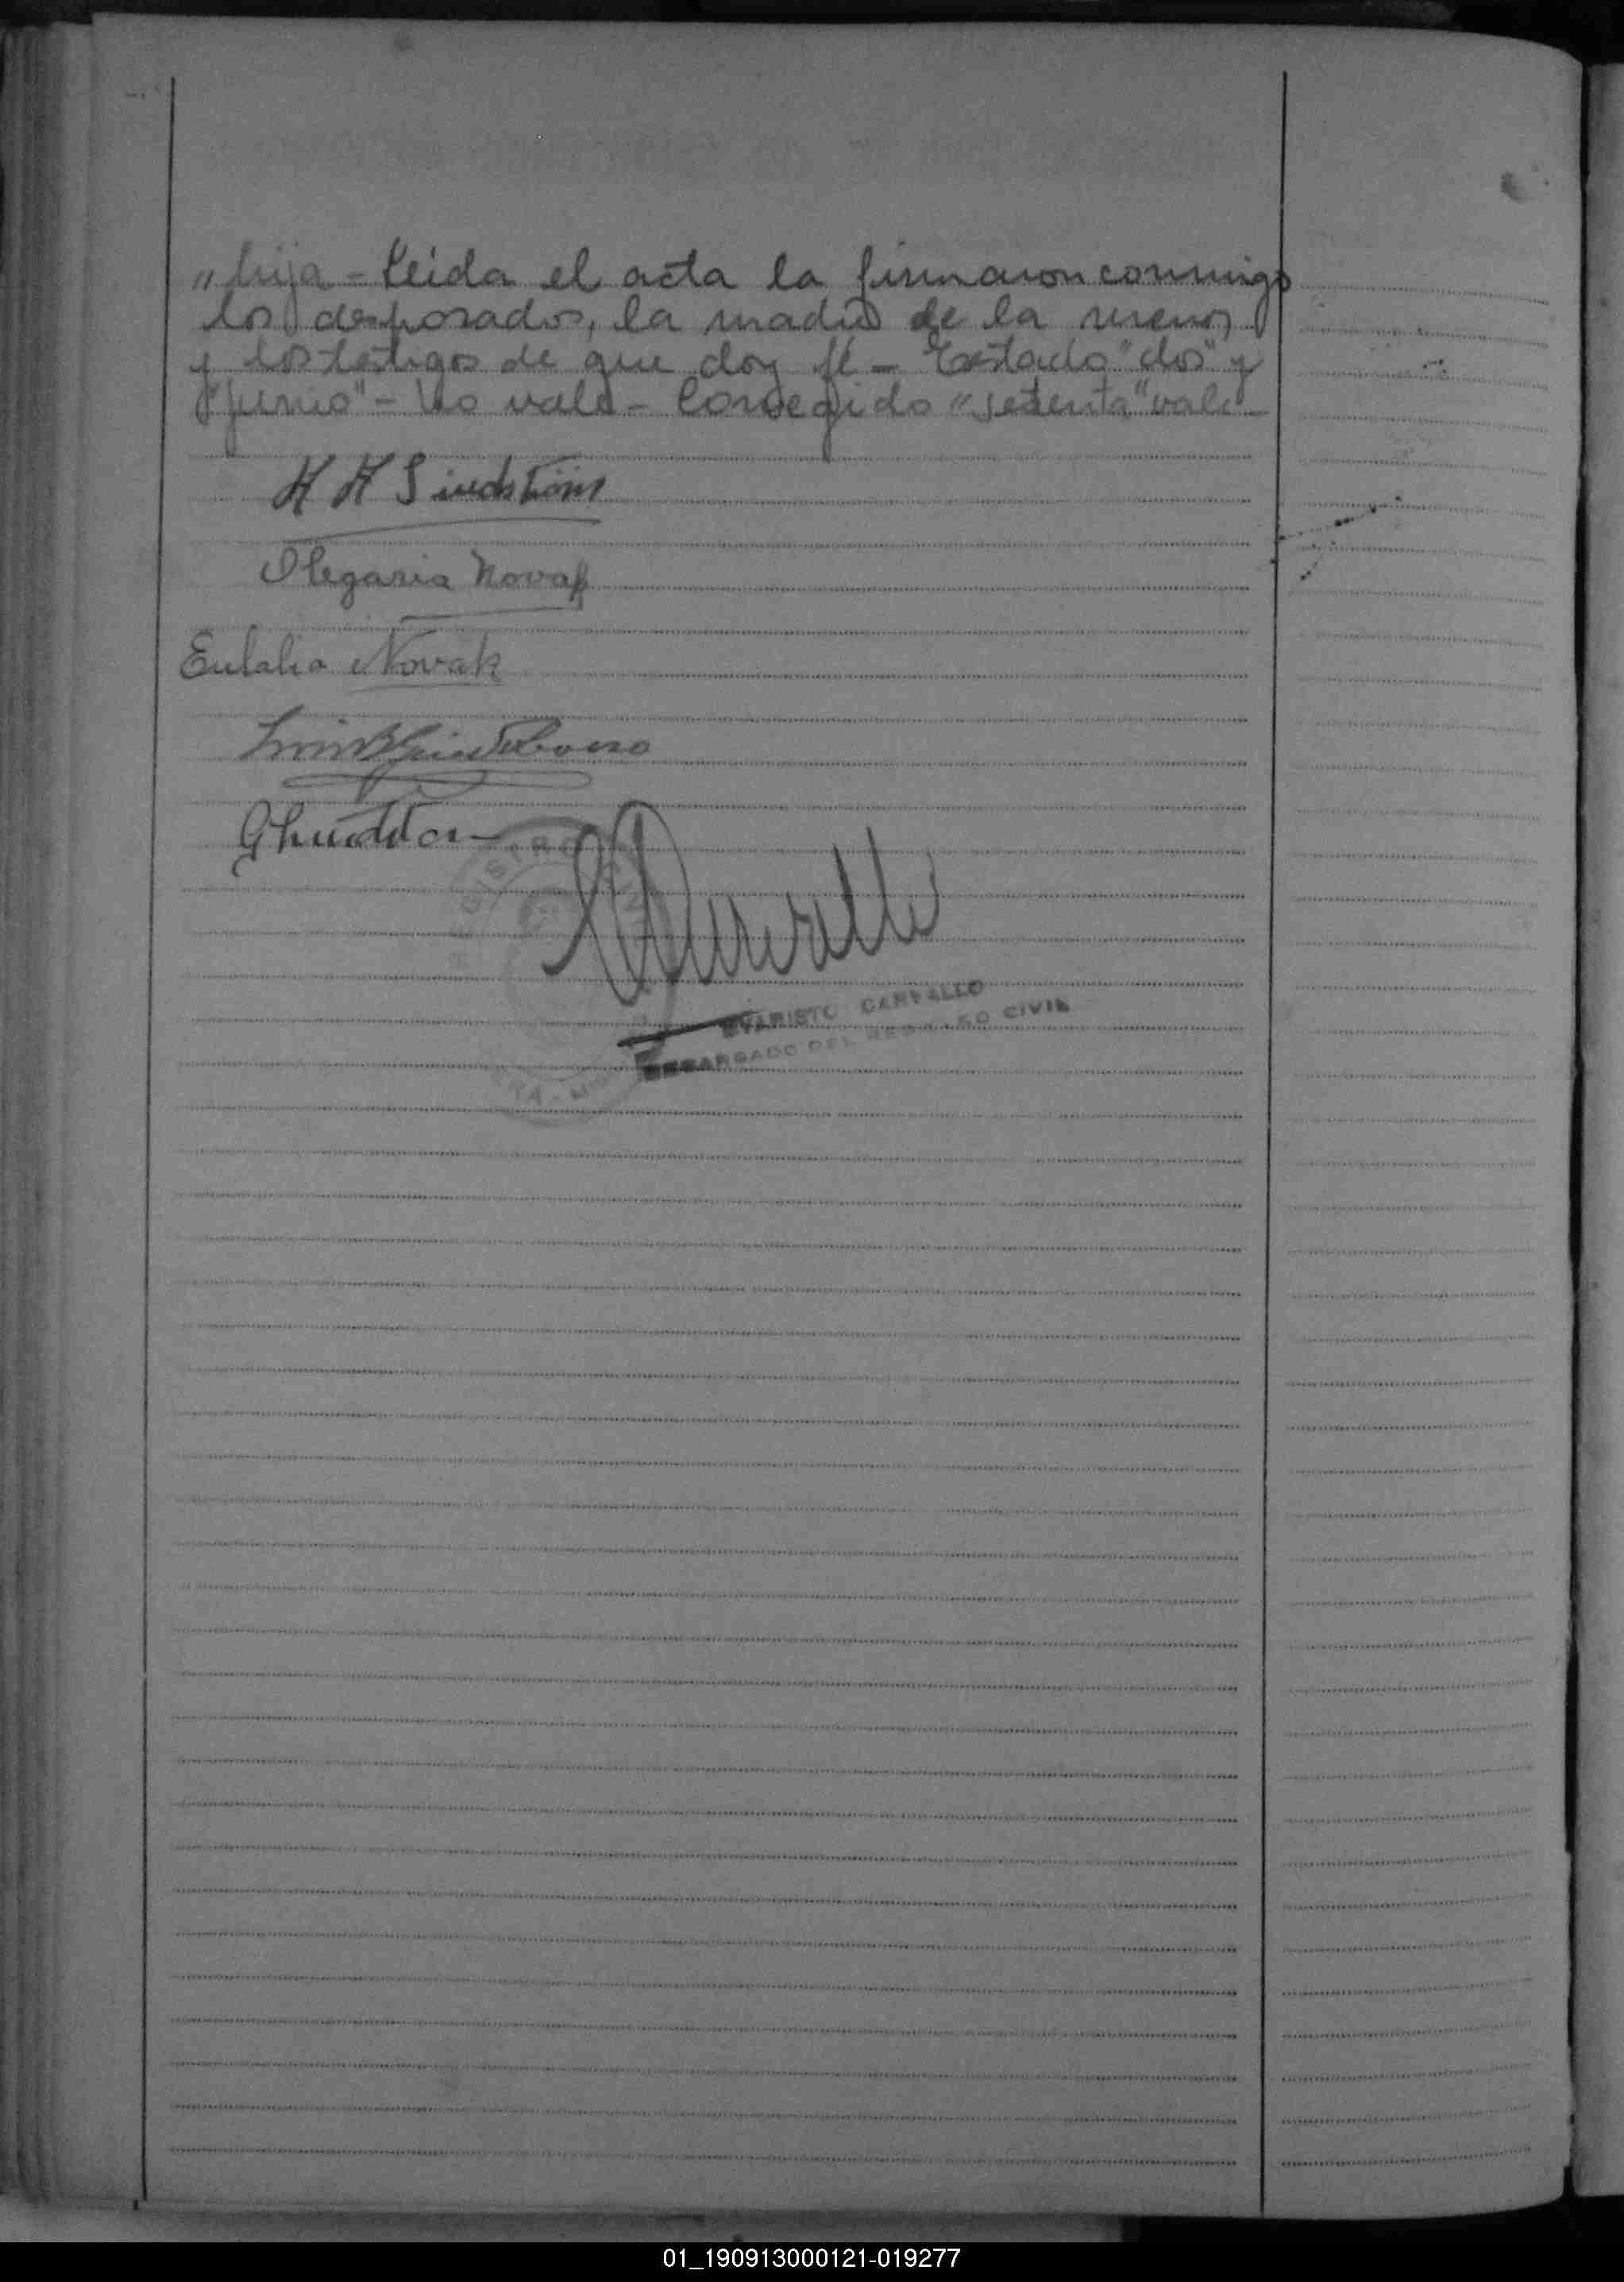 "hija - Leida el acta la firmaron conmigo
los desposados, la madre de la menor,
y los testigos de que doy fé - Testado "dos" y
"junio" - No vale - Corregido "setenta" vale -
H H Lindström
Olegaria Novak
Eulalia Novak
EVARISTO CARVALLO
ENCARGADO DEL REGISTRO CIVIL
01_190913000121-019277